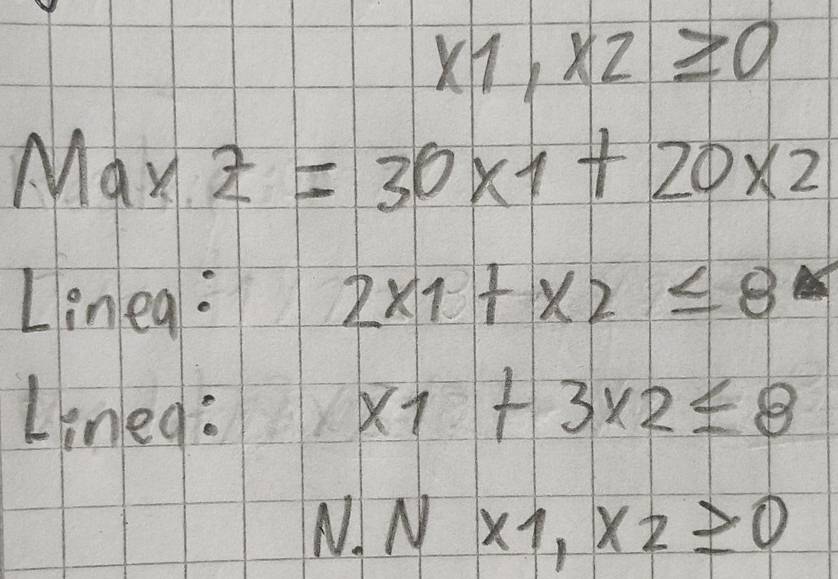 x1, x2 ≥0
Max z = 30x1 + 20x2
Linea: 2x1 + x2 ≤ 8
Linea: x1 + 3x2 ≤ 8
N.N x1, x2 ≥0